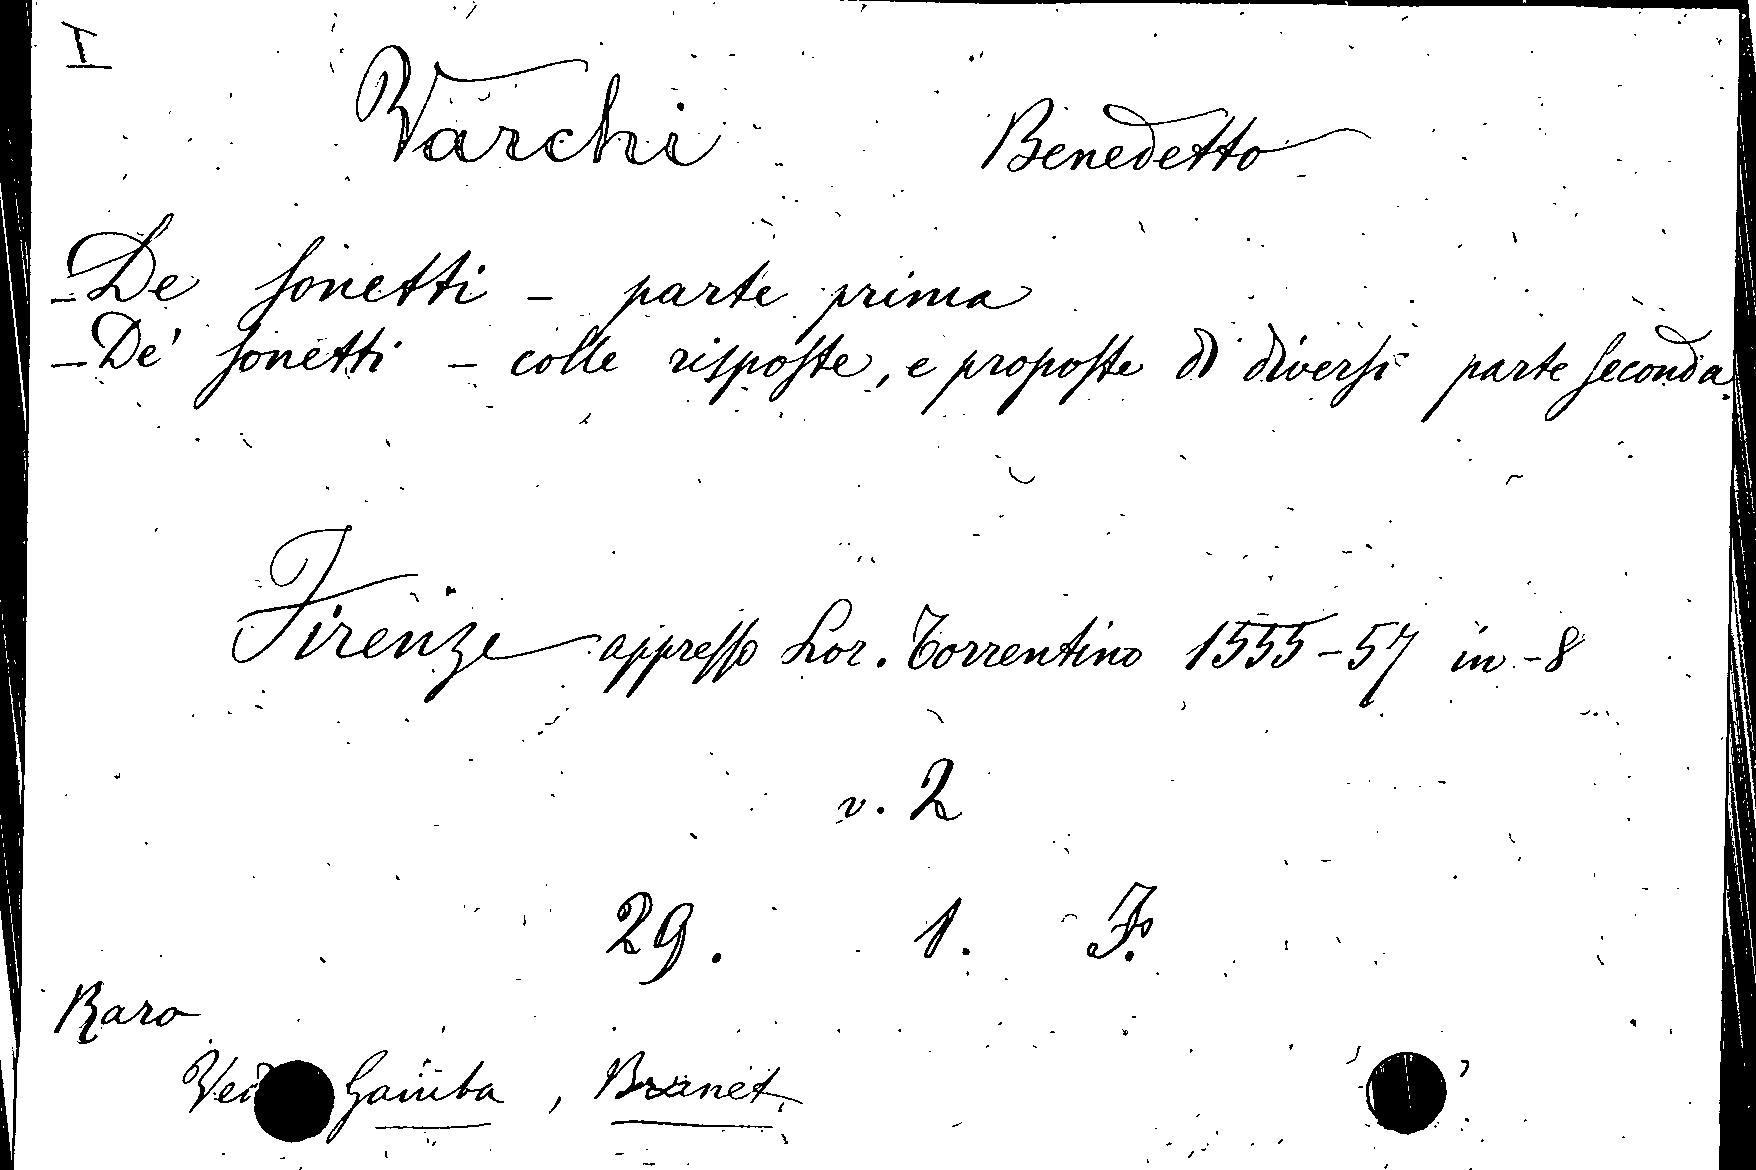 I
Varchi Benedetto
- De sonetti - parte prima
- De' sonetti - colle risposte, e proposte di diversi parte seconda.
Firenze appresso Lor. Torrentino 1555-57 in-8
v. 2
29. 1. F.
Raro
Ved Gamba, Brunet.